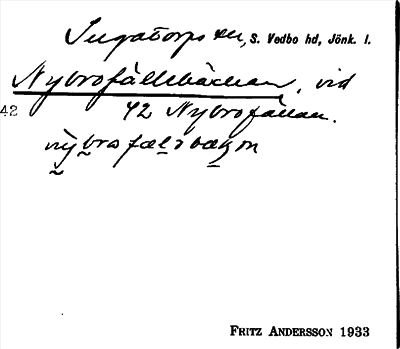 Ingatorps sn, S. Vedbo hd, Jönk. l.
Nybrofällebäcken, vid
42 42 Nybrofällan.
nybrofælabækən
FRITZ ANDERSSON 1933